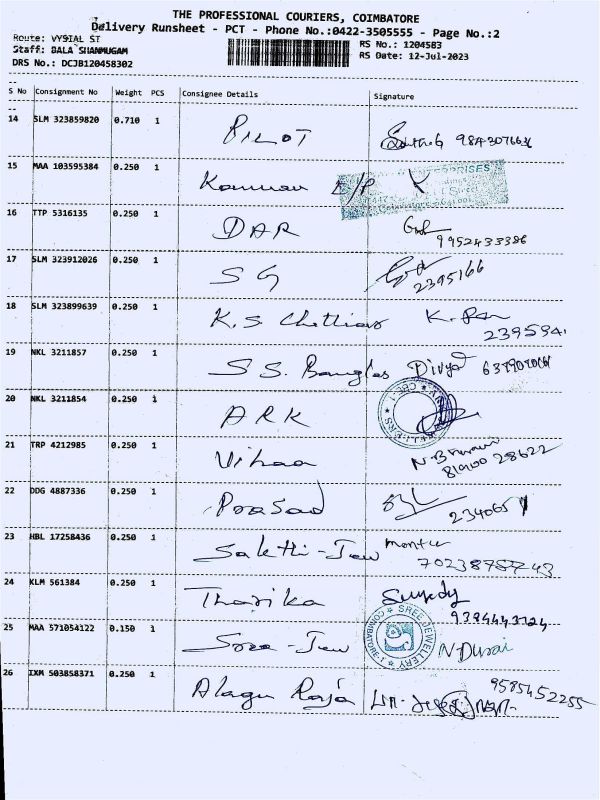 THE PROFESSIONAL COURIERS, COIMBATORE
Delivery Runsheet - PCT - Phone No.:0422-3505555 - Page No.:2
Route: VYSIAL ST
RS No.: 1204583
Staff: BALA SHANMUGAM
RS Date: 12-Jul-2023
DRS No.: DCJB120458302
S No Consignment No Weight PCS Consignee Details Signature
14 SLM 323859820 0.710 1 PILOT
15 MAA 103595384 0.250 1 Kannan E/P
16 TTP 5316135 0.250 1 DAR 9952433386
17 SLM 323912026 0.250 1 S G 2395166
18 SLM 323899639 0.250 1 K.S. Chettiar K. 2395941
19 NKL 3211857 0.250 1 S S. Bangles Divya
20 NKL 3211854 0.250 1 ARK
21 TRP 4212985 0.250 1 81900 28622
22 DDG 4887336 0.250 1 Prasad 234065
23 HBL 17258436 0.250 1 Sakthi - Jew 7023878743
24 KLM 561384 0.250 1 Tharika 9384443124
25 MAA 571054122 0.150 1 SREE JEWELLERY COIMBATORE-1 N. Durai
26 IXM 503858371 0.250 1 Alagu Raja 9585452255